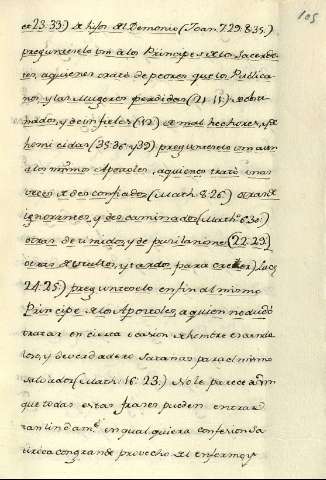 105
et 23.33.) de hijos del Demonio (Joan. 7.29. 8.35.)
preguntenselo Vm. a los Principes de los Sacerdo
tes, a quienes trató de peores que los Publica
nos y las Mugeres perdidas (21.11.) de obu
nados, y de infieles (12.) de mal hechores, y de
homicidas (35.36. y 39.) preguntenselo Vm. aun
a los mismos Apostoles, a quienes trató unas
veces de desconfiados (Math. 8.26.) otras de
ignorantes, y descaminados (Math. 6.30.)
otras de timidos, y de pusilanimes (22.29.)
otras de stultos, y tardos para creer (Luc.
24.25.) preguntenselo en fin al mismo
Principe de los Apostoles, a quien no dudó
tratar en cierta ocasion de hombre escanda
loso, y de verdadero Satanas para el mismo
Salvador (Math. 16.23.) No le parece a Vm.
que todas estas frases pueden entrar
tan lindamte. en qualquiera confesion da
tirica con grande provecho del enfermo, y